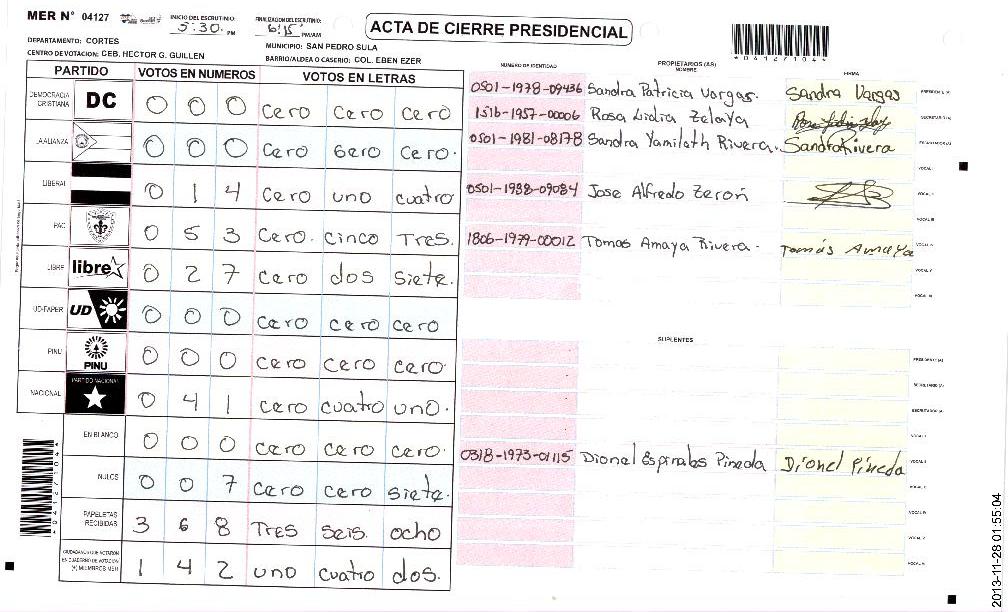 MER N° 04127
INICIO DEL ESCRUTINIO: 5:30 PM
FINALIZACION DEL ESCRUTINIO: 6:15 PM/AM
ACTA DE CIERRE PRESIDENCIAL
*04127104*
DEPARTAMENTO: CORTES
MUNICIPIO: SAN PEDRO SULA
CENTRO DE VOTACION: CEB. HECTOR G. GUILLEN
BARRIO/ALDEA O CASERIO: COL. EBEN EZER
PARTIDO VOTOS EN NUMEROS VOTOS EN LETRAS
DEMOCRACIA CRISTIANA DC 0 0 0 cero cero cero
LA ALIANZA 0 0 0 cero cero cero.
LIBERAL 0 1 4 cero uno cuatro
PAC 0 5 3 cero. cinco Tres.
LIBRE libre 0 2 7 cero dos siete.
UD-FAPER UD 0 0 0 cero cero cero
PINU PINU 0 0 0 cero cero cero.
NACIONAL PARTIDO NACIONAL 0 4 1 cero cuatro uno.
EN BLANCO 0 0 0 cero cero cero.
NULOS 0 0 7 cero cero siete.
PAPELETAS RECIBIDAS 3 6 8 Tres seis. ocho
CIUDADANOS QUE VOTARON EN CUADERNO DE VOTACION (+) MIEMBROS MER 1 4 2 uno cuatro dos.
NUMERO DE IDENTIDAD PROPIETARIOS (AS) NOMBRE FIRMA
0501-1978-09436 Sandra Patricia Vargas. Sandra Vargas PRESIDENTE (A)
1516-1957-00006 Rosa Lidia Zelaya SECRETARIO (A)
0501-1981-08178 Sandra Yamileth Rivera. Sandra Rivera ESCRUTADOR (A)
VOCAL I
0501-1988-09084 Jose Alfredo Zerón VOCAL II
VOCAL III
1806-1979-00012 Tomas Amaya Rivera. Tomás Amaya VOCAL IV
VOCAL V
VOCAL VI
SUPLENTES
PRESIDENTE (A)
SECRETARIO (A)
ESCRUTADOR (A)
VOCAL I
0318-1973-01115 Dionel Espinales Pineda Dionel Pineda VOCAL II
VOCAL III
VOCAL IV
VOCAL V
VOCAL VI
*04127104*
2013-11-28 01:55:04